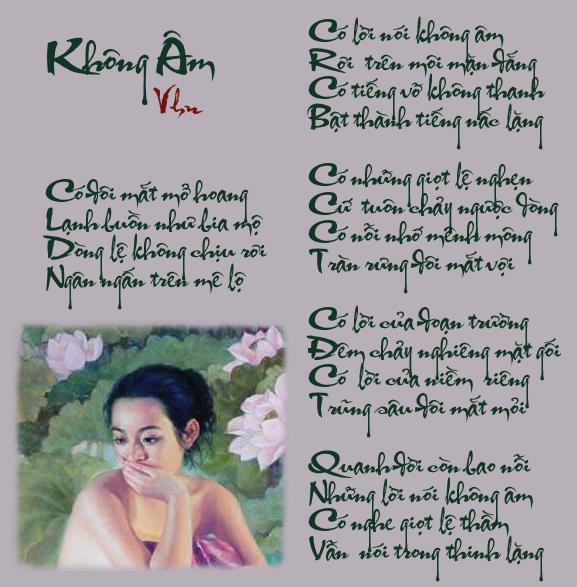 Không Âm
Vhn
Có đôi mắt mở hoang
Lạnh buồn như bia mộ
Dòng lệ không chịu rơi
Ngân ngấn trên mê lộ
Có lời nói không âm
Rơi trên môi mặn đắng
Có tiếng vỡ không thanh
Bật thành tiếng nấc lặng
Có những giọt lệ nghẹn
Cứ tuôn chảy ngược dòng
Có nỗi nhớ mênh mông
Tràn rưng đôi mắt vợi
Có lời của đoạn trường
Đêm chảy nghiêng mặt gối
Có lời của niềm riêng
Trũng sâu đôi mắt mỏi
Quanh đời còn bao nỗi
Những lời nói không âm
Có nghe giọt lệ thầm
Vẫn nói trong thinh lặng